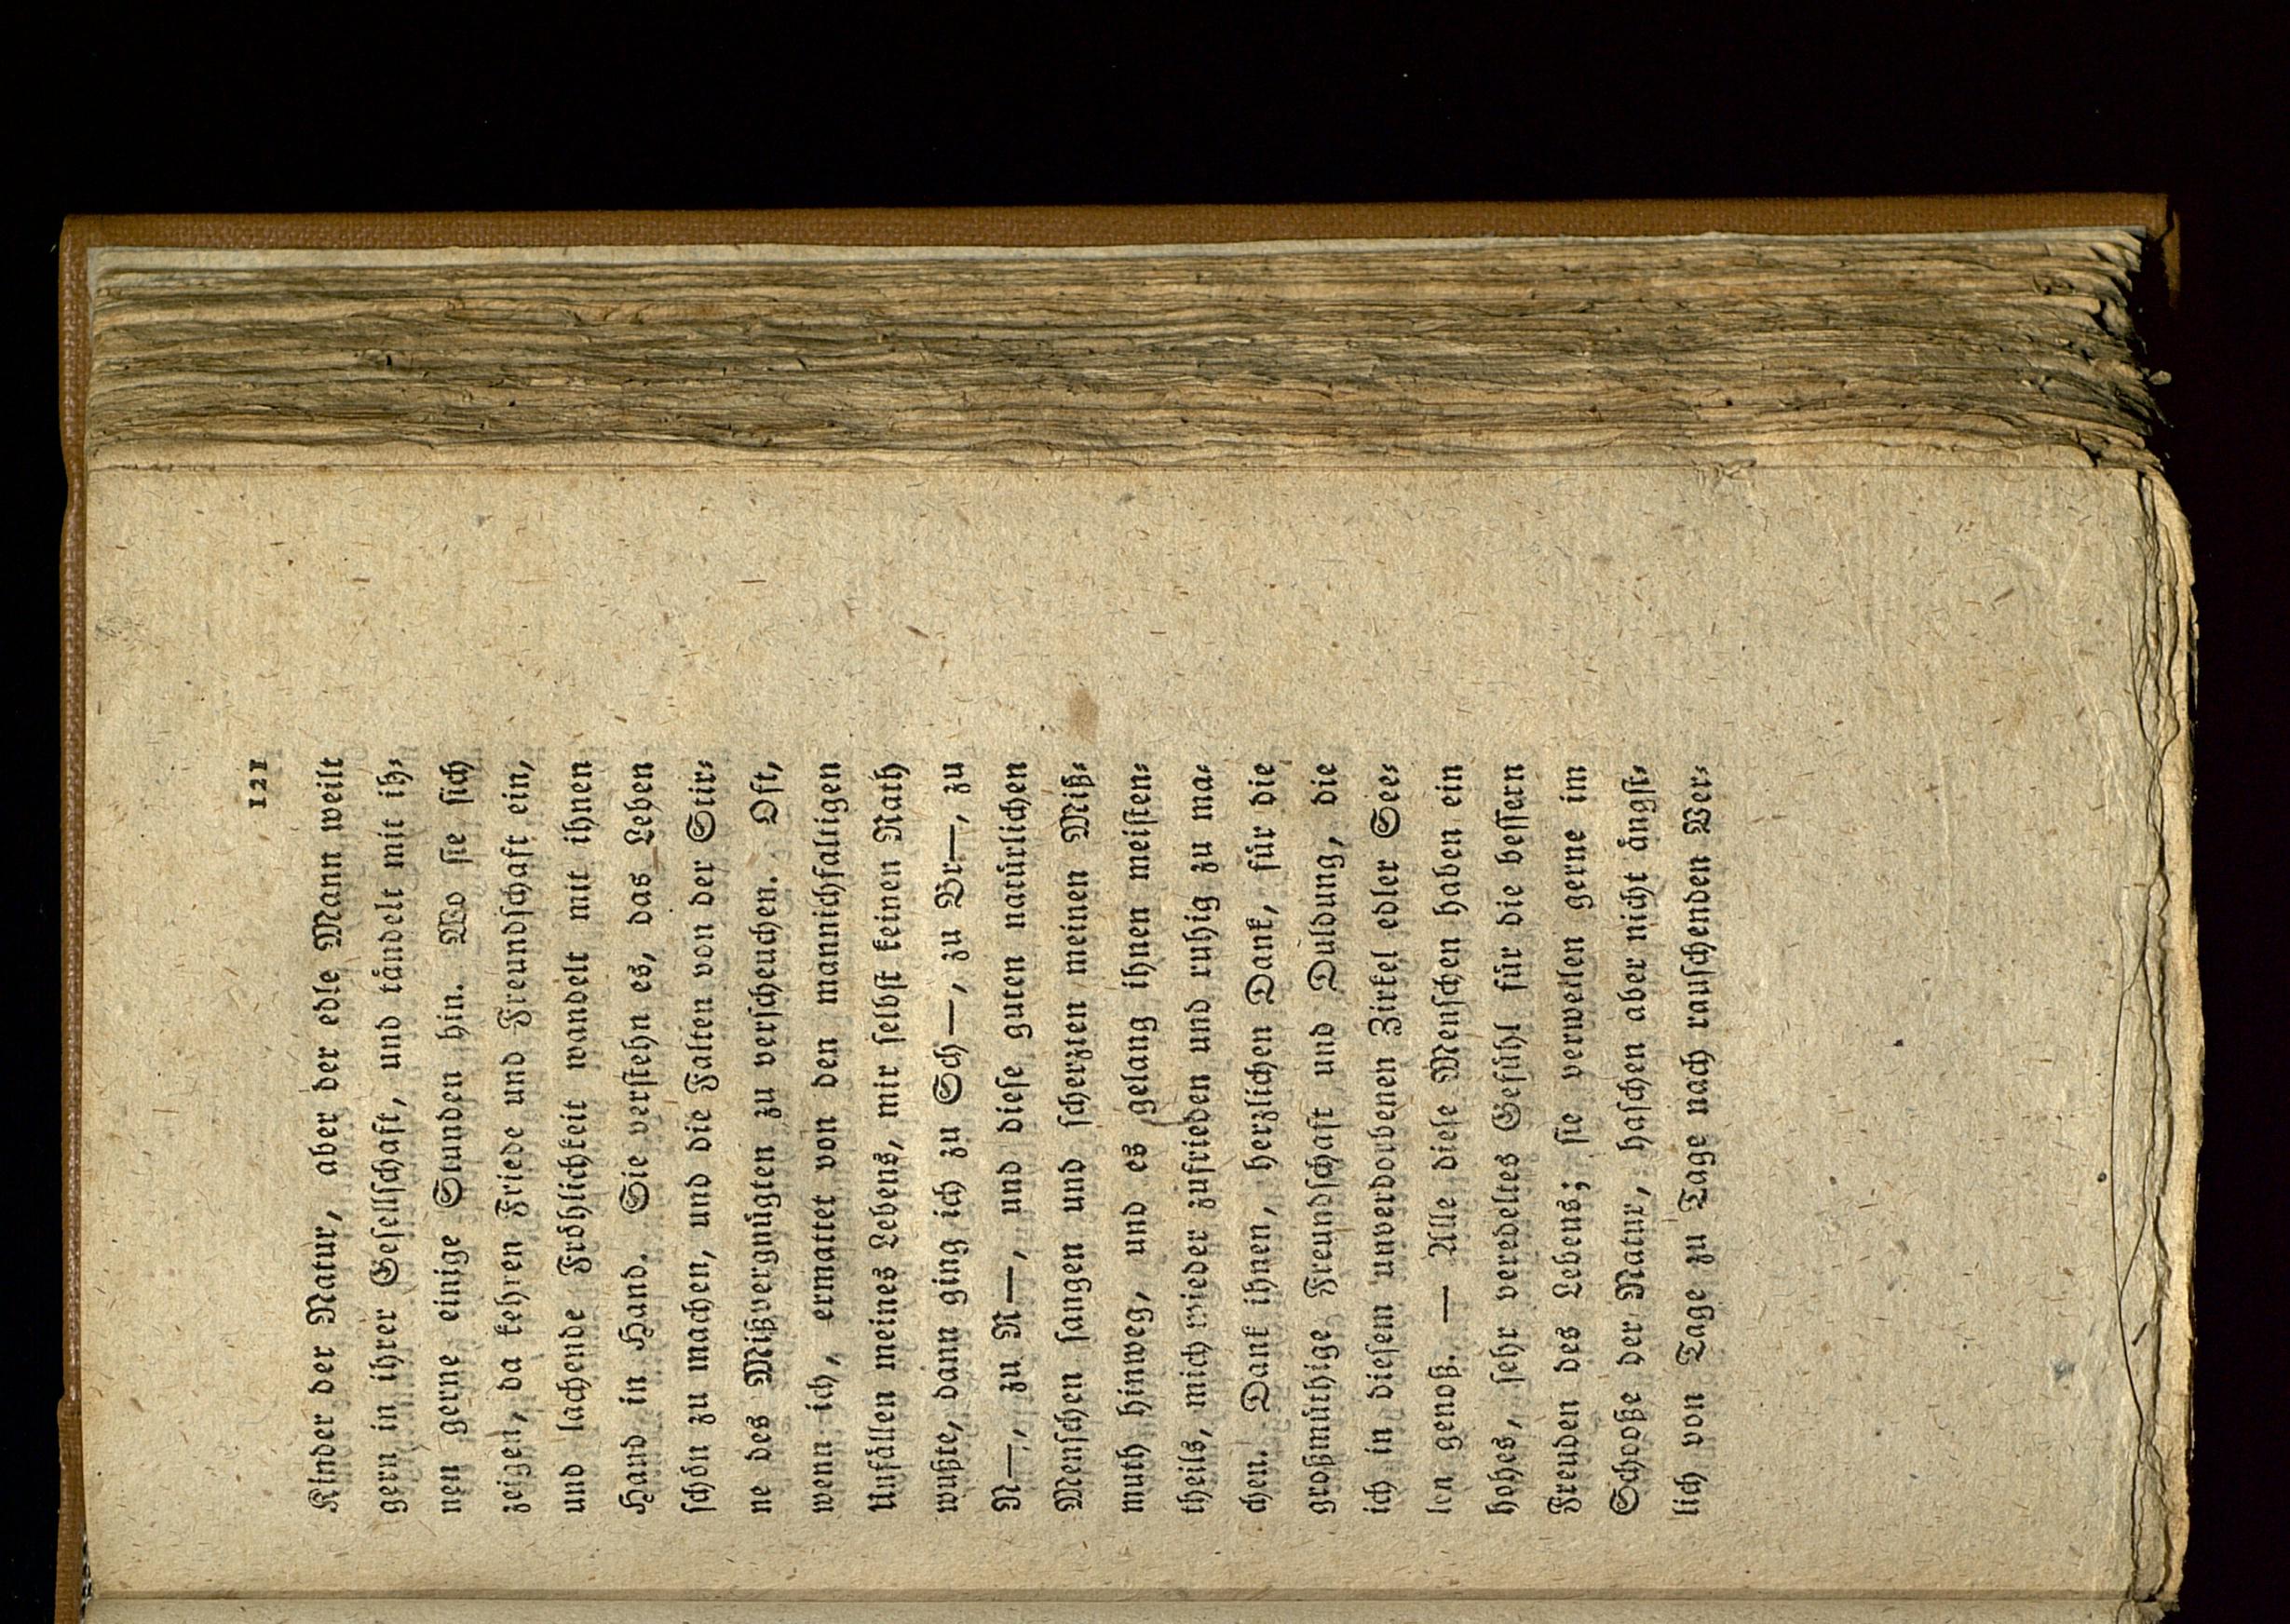 121
Kinder der Natur, aber der edle Mann weilt
gern in ihrer Geſellſchaft, und taͤndelt mit ih⸗
nen gerne einige Stunden hin. Wo ſie ſich
zeigen, da kehren Friede und Freundſchaft ein,
und lachende Froͤhlichkeit wandelt mit ihnen
Hand in Hand. Sie verſtehn es, das Leben
ſchoͤn zu machen, und die Falten von der Stir⸗
ne des Mißvergnuͤgten zu verſcheuchen. Oft,
wenn ich, ermattet von den mannichfaltigen
Unfaͤllen meines Lebens, mir ſelbſt keinen Rath
wußte, dann ging ich zu Sch—, zu Br—, zu
N—, zu N—, und dieſe guten natuͤrlichen
Menſchen ſangen und ſcherzten meinen Miß⸗
muth hinweg, und es gelang ihnen meiſten⸗
theils, mich wieder zufrieden und ruhig zu ma⸗
chen. Dank ihnen, herzlichen Dank, fuͤr die
großmuͤthige Freundſchaft und Duldung, die
ich in dieſem unverdorbenen Zirkel edler See⸗
len genoß. — Alle dieſe Menſchen haben ein
hohes, ſehr veredeltes Gefuͤhl fuͤr die beſſern
Freuden des Lebens; ſie verweilen gerne im
Schooße der Natur, haſchen aber nicht aͤngſt⸗
lich von Tage zu Tage nach rauſchenden Ver⸗